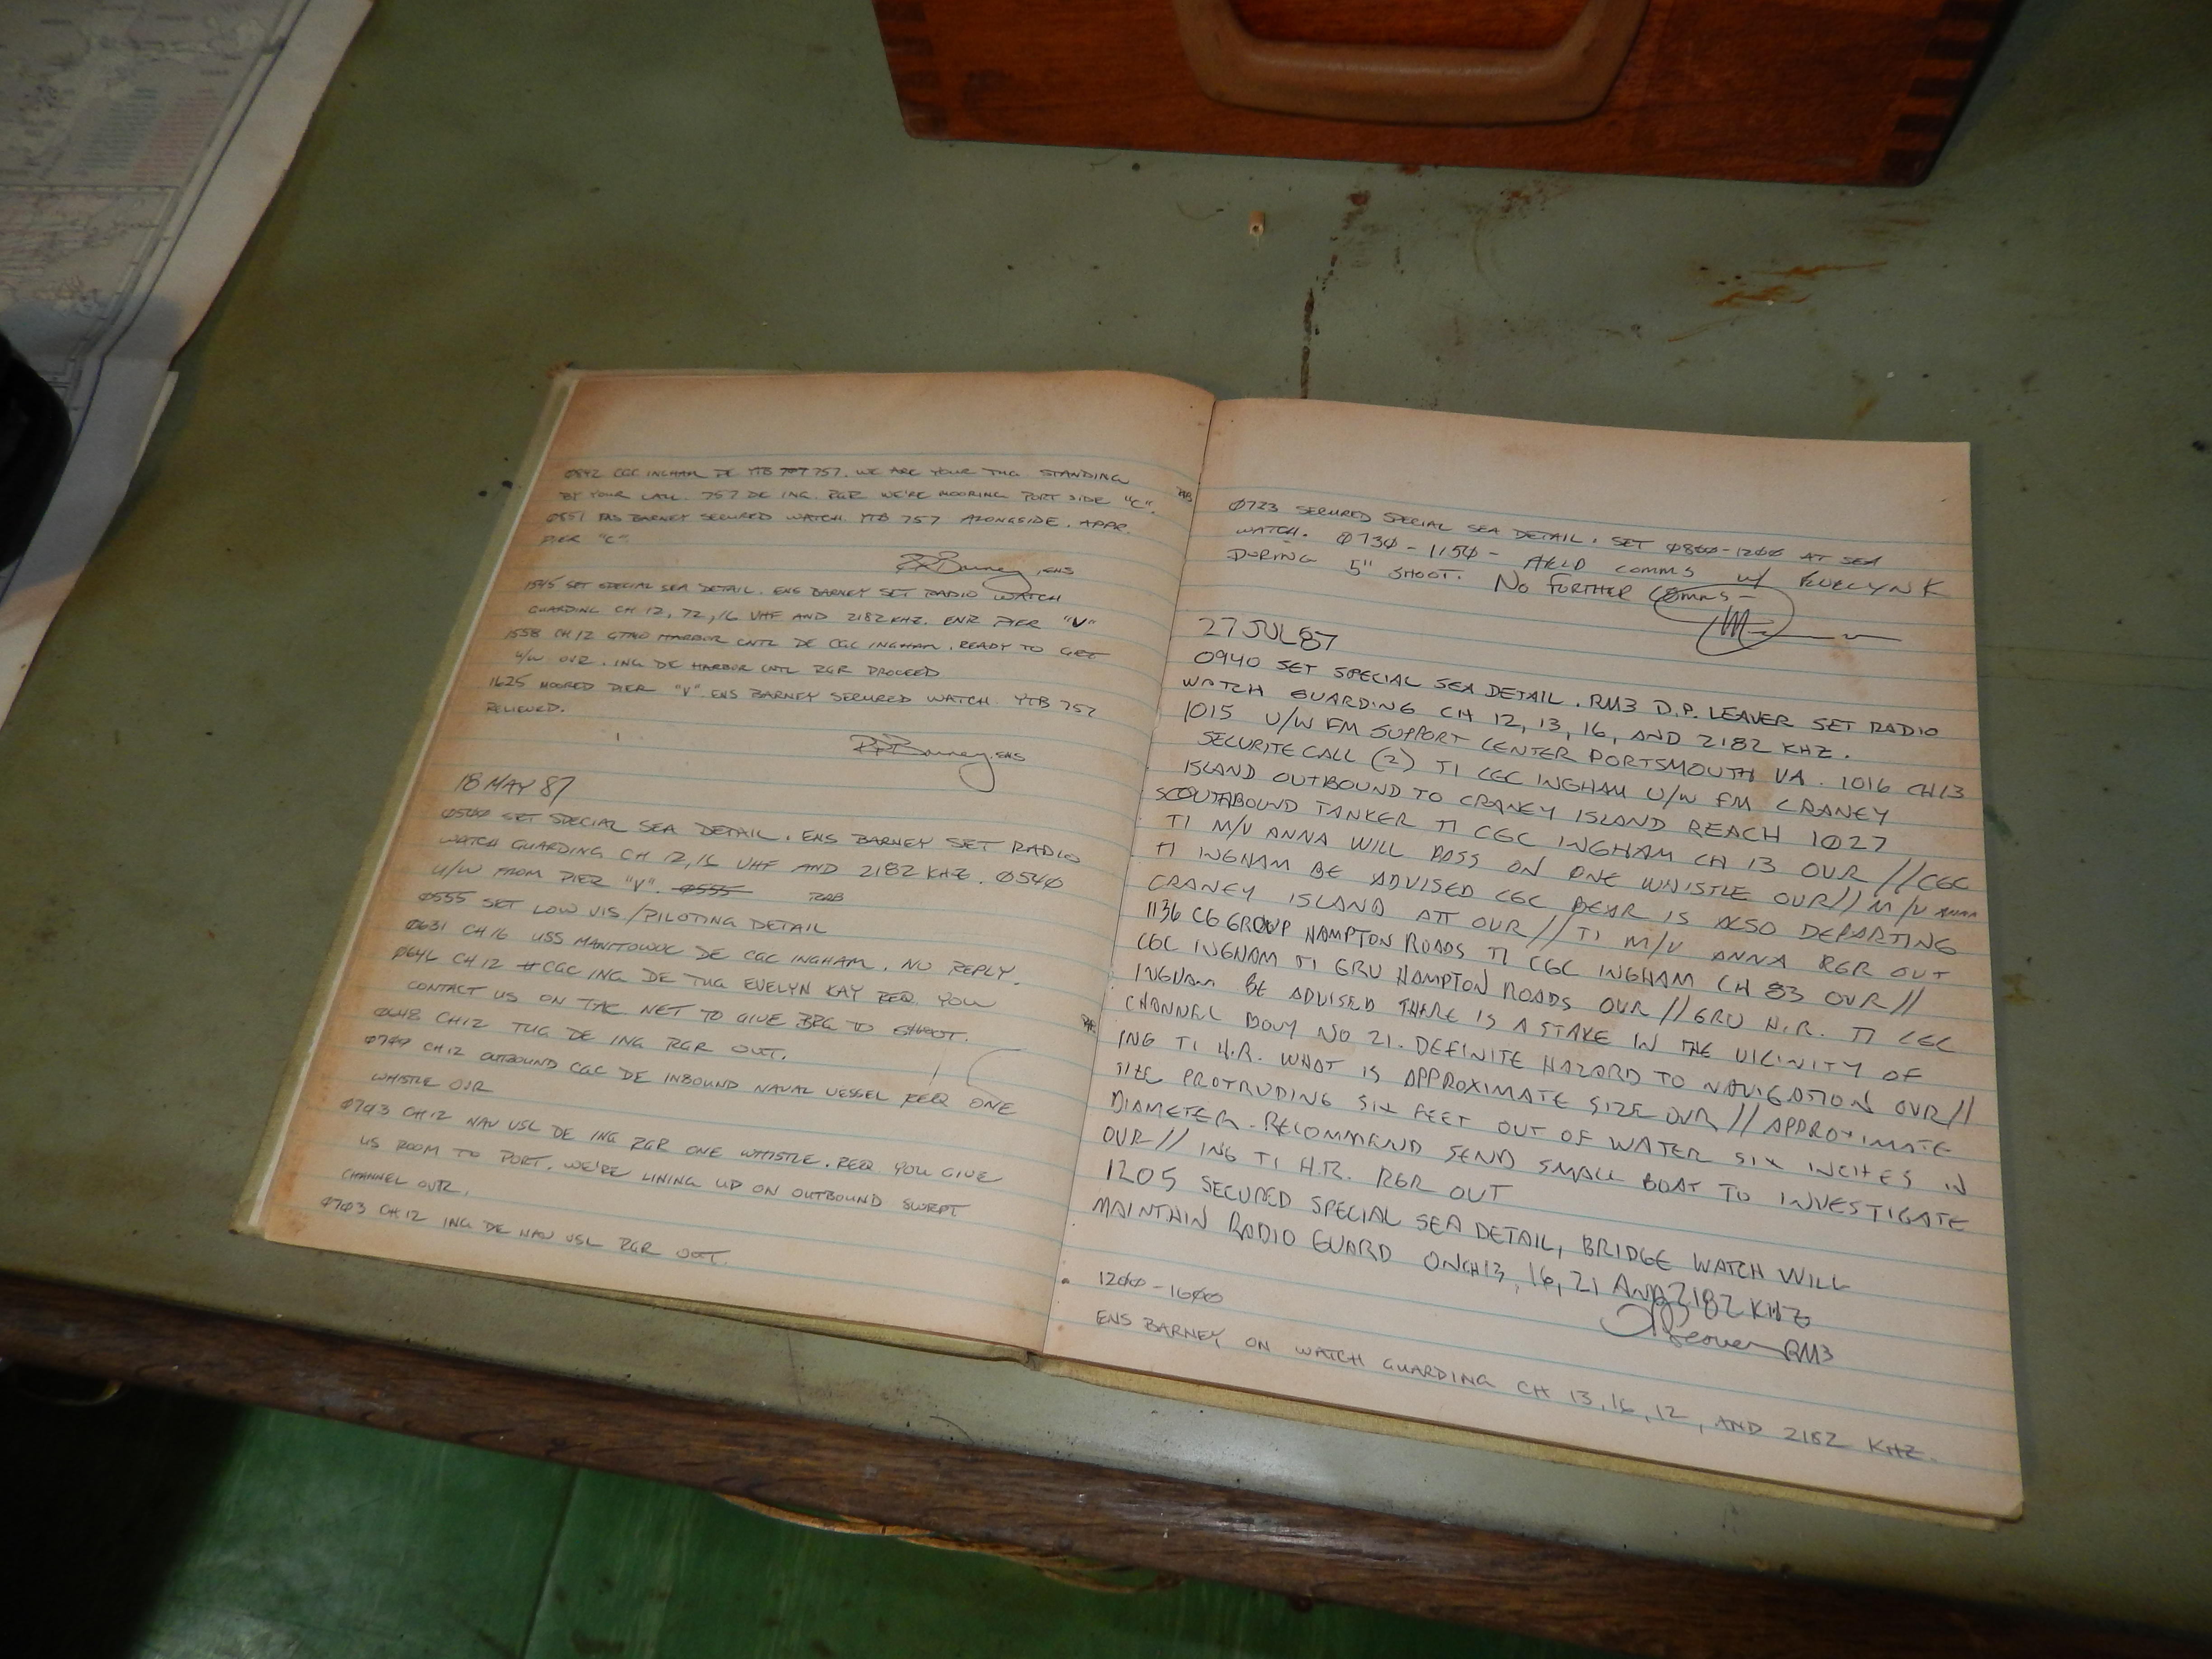 0842 CGC INGHAM DE YTB 757. WE ARE YOUR TUG STANDING
BY YOUR CALL. 757 DE ING. RGR WE'RE MOORING PORT SIDE "C".
0851 ENS BARNEY SECURED WATCH. YTB 757 ALONGSIDE. APPR.
PIER "C"
RRBarney, ENS
1545 SET SPECIAL SEA DETAIL. ENS BARNEY SET RADIO WATCH
GUARDING CH 12, 72, 16 VHF AND 2182 KHZ. ENR PIER "V"
1558 CH12 GTMO HARBOR CNTL DE CGC INGHAM. READY TO GET
U/W OVR. ING DE HARBOR CNTL RGR PROCEED
1625 MOORED PIER "V" ENS BARNEY SECURED WATCH YTB 757
RELIEVED.
RRBarney, ENS
18 MAY 87
0500 SET SPECIAL SEA DETAIL. ENS BARNEY SET RADIO
WATCH GUARDING CH 12, 16 VHF AND 2182 KHZ. 0540
U/W FROM PIER "V". 0555 RRB
0555 SET LOW VIS/PILOTING DETAIL
0631 CH16 USS MANITOWOC DE CGC INGHAM. NO REPLY.
0646 CH12 CGC ING DE TUG EVELYN KAY REQ YOU
CONTACT US ON TAC NET TO GIVE BRG TO SHOOT.
0648 CH12 TUG DE ING RGR OUT.
CH12 OUTBOUND CGC DE INBOUND NAVAL VESSEL REQ ONE
WHISTLE OVR
0703 CH12 NAV VSL DE ING RGR ONE WHISTLE. REQ YOU GIVE
US ROOM TO PORT. WE'RE LINING UP ON OUTBOUND SWEPT
CHANNEL OVR.
0703 CH12 ING DE NAV VSL RGR OUT.
RRB
0723 SECURED SPECIAL SEA DETAIL. SET 0800-1200 AT SEA
WATCH. 0730-1150 - HELD COMMS W/ EVELYN K
DURING 5" SHOOT. NO FURTHER COMMS -
27 JUL 87
0940 SET SPECIAL SEA DETAIL. RM3 D.P. LEAVER SET RADIO
WATCH GUARDING CH 12, 13, 16, AND 2182 KHZ.
1015 U/W FM SUPPORT CENTER PORTSMOUTH VA. 1016 CH13
SECURITE CALL (2) TI CGC INGHAM U/W FM CRANEY
ISLAND OUTBOUND TO CRANEY ISLAND REACH 1027
SOUTHBOUND TANKER TI CGC INGHAM CH 13 OUR // CGC
TI M/V ANNA WILL PASS ON ONE WHISTLE OUR // M/V ANNA
TI INGHAM BE ADVISED CGC BEAR IS ALSO DEPARTING
CRANEY ISLAND ATT OUR // TI M/V ANNA RGR OUT
1136 CG GROUP HAMPTON ROADS TI CGC INGHAM CH 83 OVR //
CGC INGHAM TI GRU HAMPTON ROADS OUR // GRU H.R. TI CGC
INGHAM BE ADVISED THERE IS A STAKE IN THE VICINITY OF
CHANNEL BOUY NO 21. DEFINITE HAZARD TO NAVIGATION OVR //
ING TI H.R. WHAT IS APPROXIMATE SIZE OVR // APPROXIMATE
SIZE PROTRUDING SIX FEET OUT OF WATER SIX INCHES IN
DIAMETER. RECOMMEND SEND SMALL BOAT TO INVESTIGATE
OUR // ING TI H.R. RGR OUT
1205 SECURED SPECIAL SEA DETAIL, BRIDGE WATCH WILL
MAINTAIN RADIO GUARD ON CH13, 16, 21 AND 2182 KHZ
DPLeaver RM3
1200-1600
ENS BARNEY ON WATCH GUARDING CH 13, 16, 12, AND 2182 KHZ.